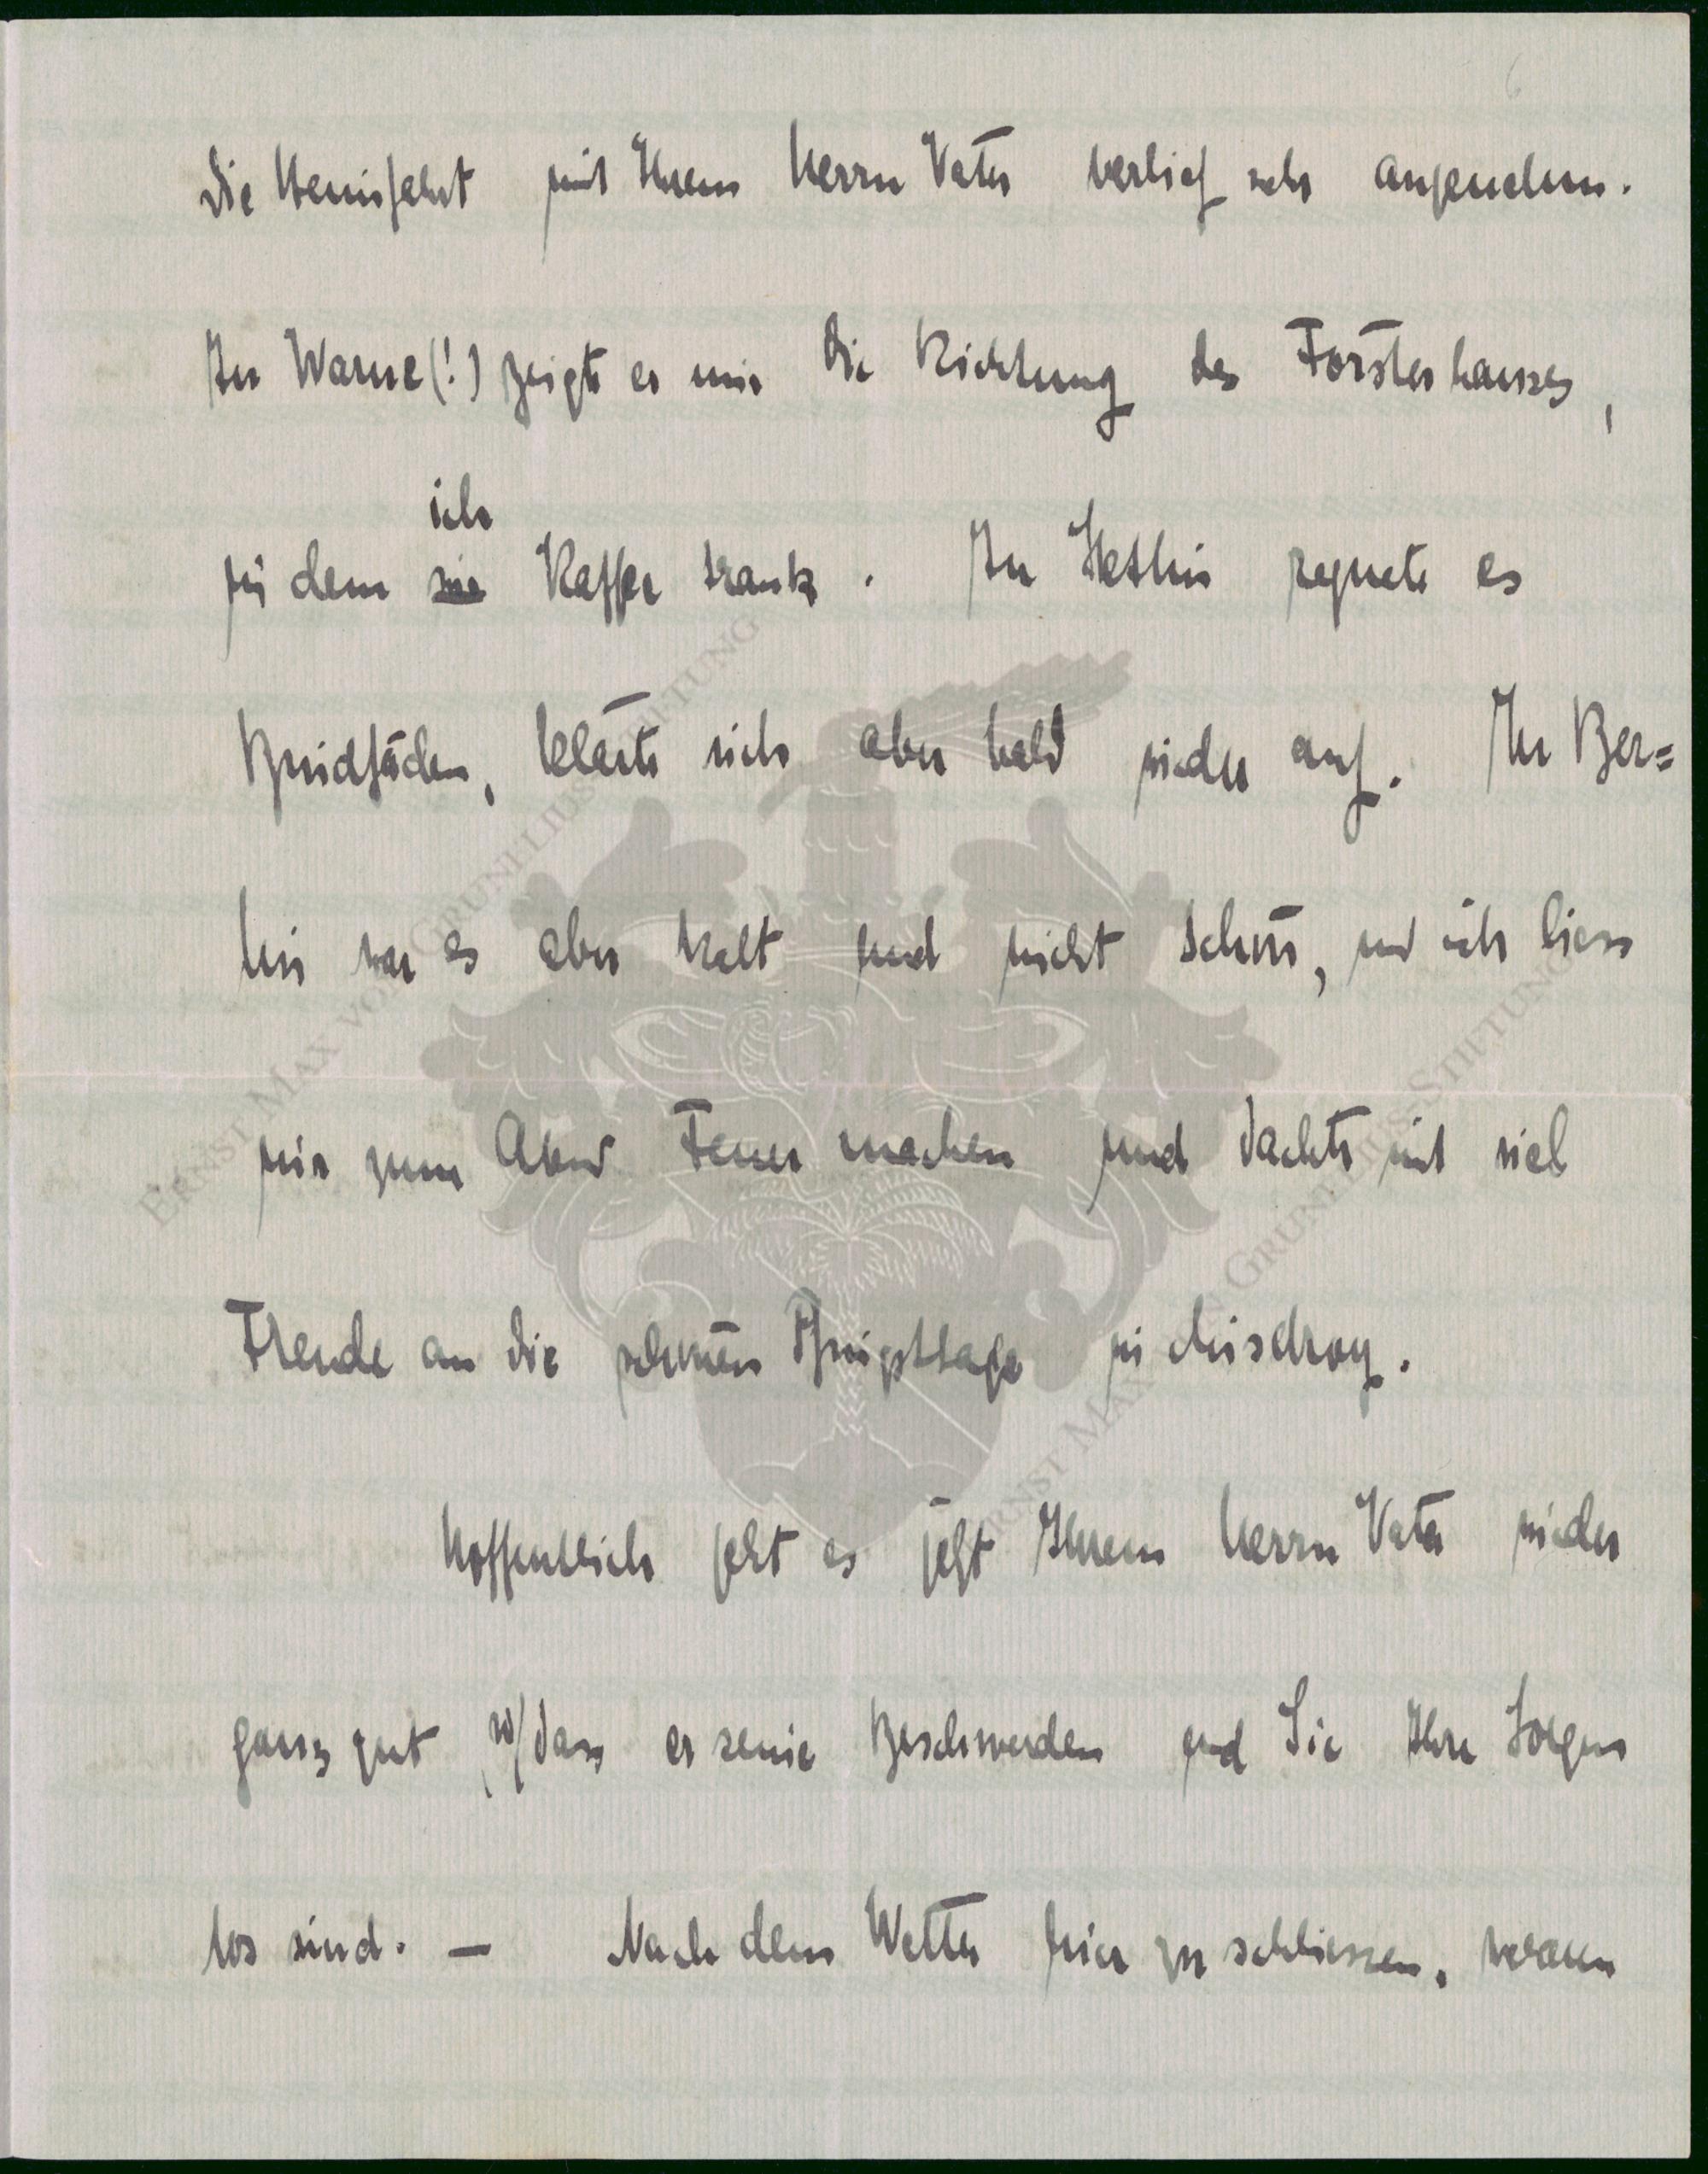 6
Die Heimfahrt mit Ihrem Herrn Vater verlief sehr angenehm.
In Warne(!) zeigte er mir die Richtung des Forsterhauses,
ich
in dem sie Kaffee trank. In Stettin regnete es
Bindfäden, klärte sich aber bald wieder auf. In Ber=
lin war es aber kalt und nicht schön, und ich liess
mir zum Abend Feuer machen und dachte mit viel
Freude an die schönen Pfingsttage in Misdroy.
Hoffentlich geht es jetzt Ihrem Herrn Vater wieder
ganz gut, so/dass er seine Beschwerden und Sie Ihre Sorgen
los sind. — Nach dem Wetter hier zu schliessen, waren
ERNST MAX VON GRUNELIUS-STIFTUNG
ERNST MAX VON GRUNELIUS-STIFTUNG